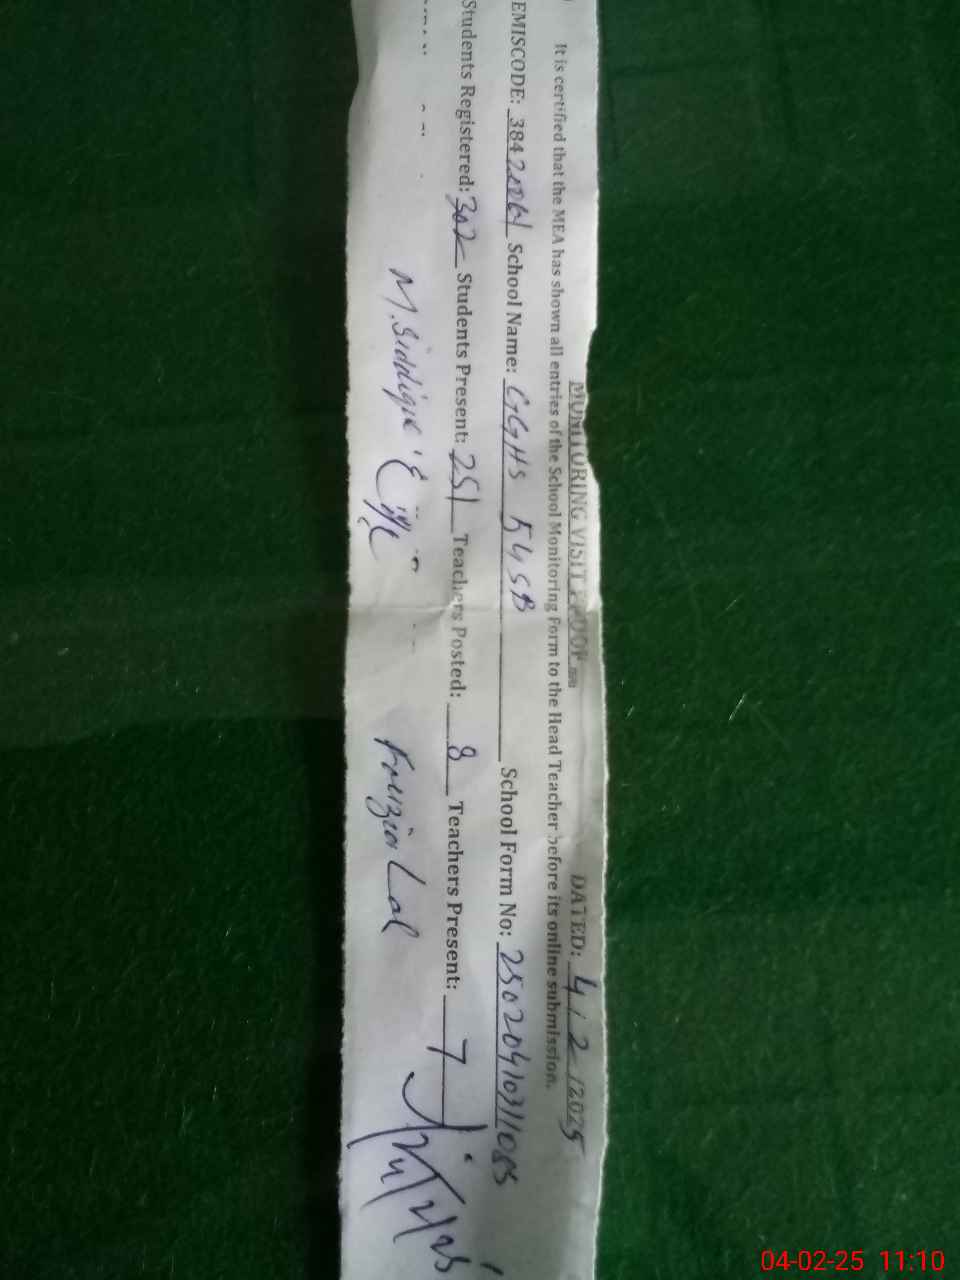 MONITORING VISIT PROOF DATED: 4/2/2025
It is certified that the MEA has shown all entries of the School Monitoring Form to the Head Teacher before its online submission.
EMISCODE: School Name: GGHS 54SB School Form No:
Students Registered: 302 Students Present: 251 Teachers Posted: 8 Teachers Present: 7
M. Siddique
04-02-25 11:10